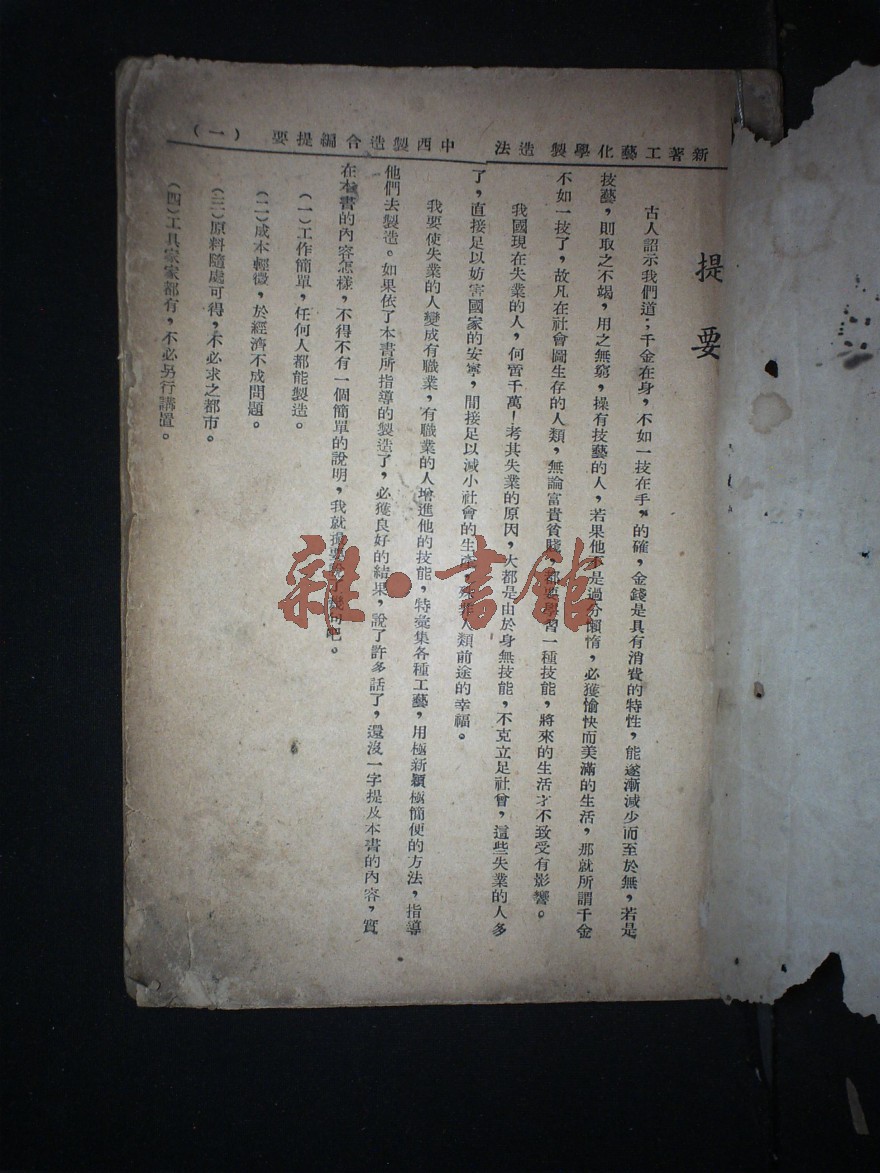 新著工藝化學製造法　中西製造合編提要　（一）
提要
古人詔示我們道；千金在身，不如一技在手，的確，金錢是具有消費的特性，能遂漸減少而至於無，若是
技藝，則取之不竭，用之無窮，操有技藝的人，若果他不是過分懶惰，必獲愉快而美滿的生活，那就所謂千金
不如一技了，故凡在社會圖生存的人類，無論富貴貧賤，都要學習一種技能，將來的生活才不致受有影響。
我國現在失業的人，何啻千萬！考其失業的原因，大都是由於身無技能，不克立足社會，這些失業的人多
了，直接足以妨害國家的安寧，間接足以減小社會的生產，殊非人類前途的幸福。
我要使失業的人變成有職業，有職業的人增進他的技能，特彙集各種工藝，用極新穎極簡便的方法，指導
他們去製造。如果依了本書所指導的製造了，必獲良好的結果，說了許多話了，還沒一字提及本書的內容，實
在本書的內容怎樣，不得不有一個簡單的說明，我就擇要說了幾句吧。
（一）工作簡單，任何人都能製造。
（二）成本輕微，於經濟不成問題。
（三）原料隨處可得，不必求之都市。
（四）工具家家都有，不必另行購置。
雜·書館